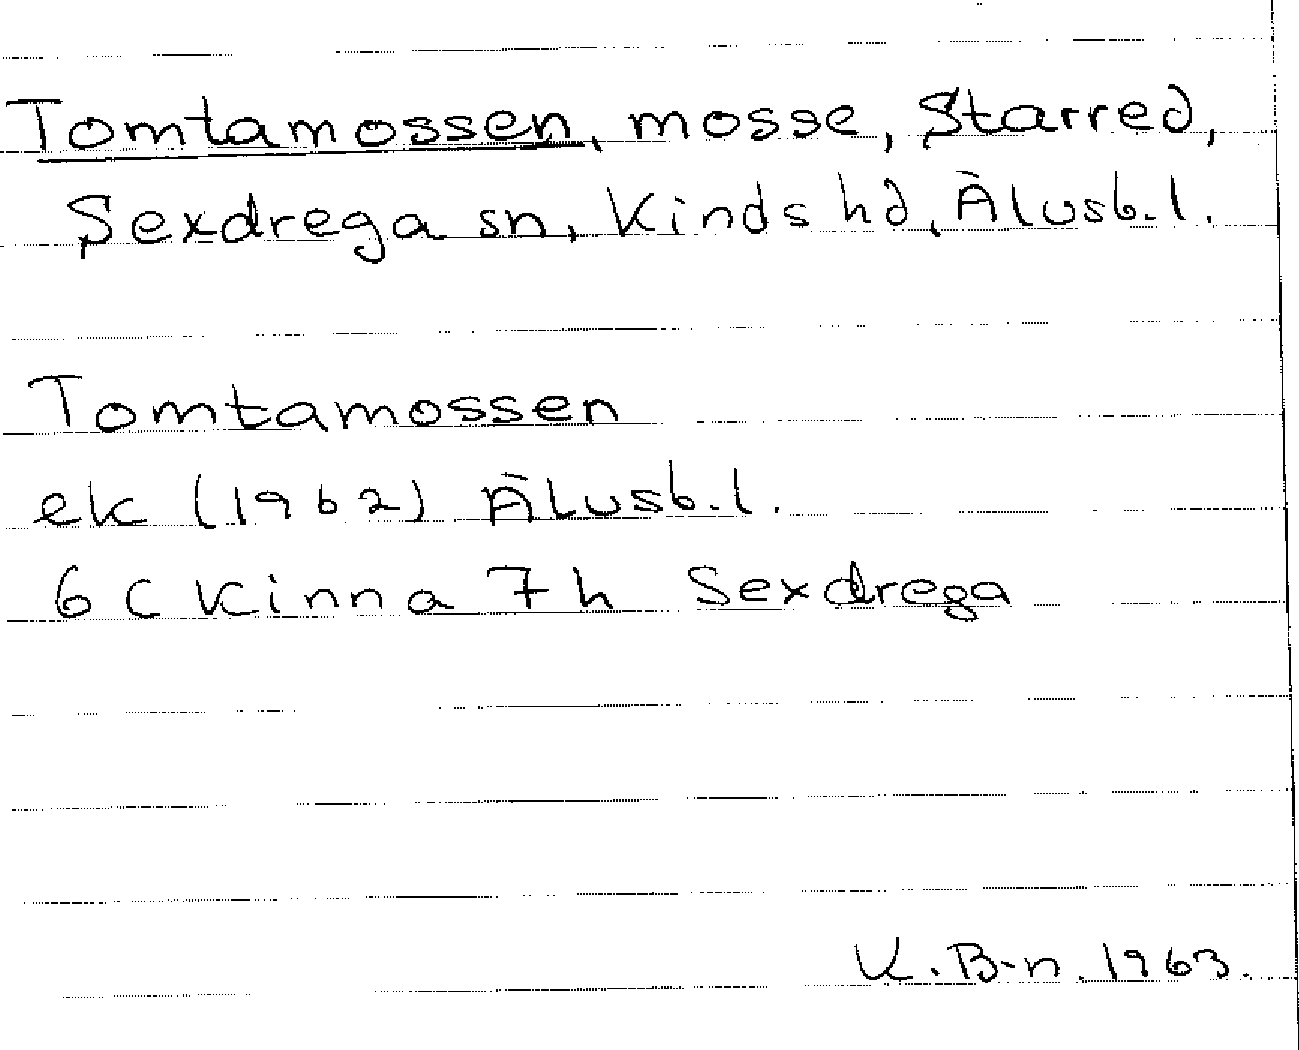 Tomtamossen, mosse, Starred,
Sexdrega sn, Kinds hd, Älvsb. l.
Tomtamossen
ek (1962) Älvsb. l.
6 C Kinna 7 h Sexdrega
K. B-n. 1963.